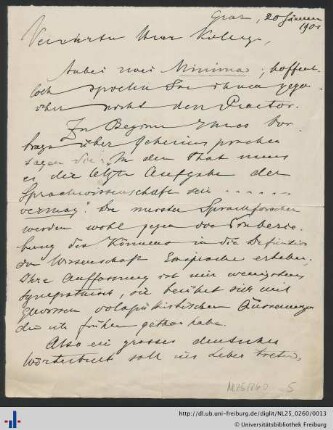 Graz, 20 Jänner
1901
Verehrter Herr Kollege,
Anbei zwei Minima; hoffent-
lich spielen Sie ihnen gegen-
über nicht den Praetor.
Zu Beginn Ihres Vor-
trags über Geheimsprachen
sagen Sie: In der That muss
es die letzte Aufgabe der
Sprachwissenschaft sein ......
vermag. Die meisten Sprachforscher
werden wohl gegen die Einbezie-
hung des Könnens in die Definition
der Wissenschaft Einsprache erheben.
Ihre Auffassung ist mir wenigstens
sympathisch, sie berührt sich mit
gewissen volapükistischen Äusserungen
die ich früher gethan habe.
Also ein grosses deutsches
Wörterbuch soll ins Leben treten,
NL25/260
5
http://dl.ub.uni-freiburg.de/diglit/NL25_0260/0033
© Universitätsbibliothek Freiburg